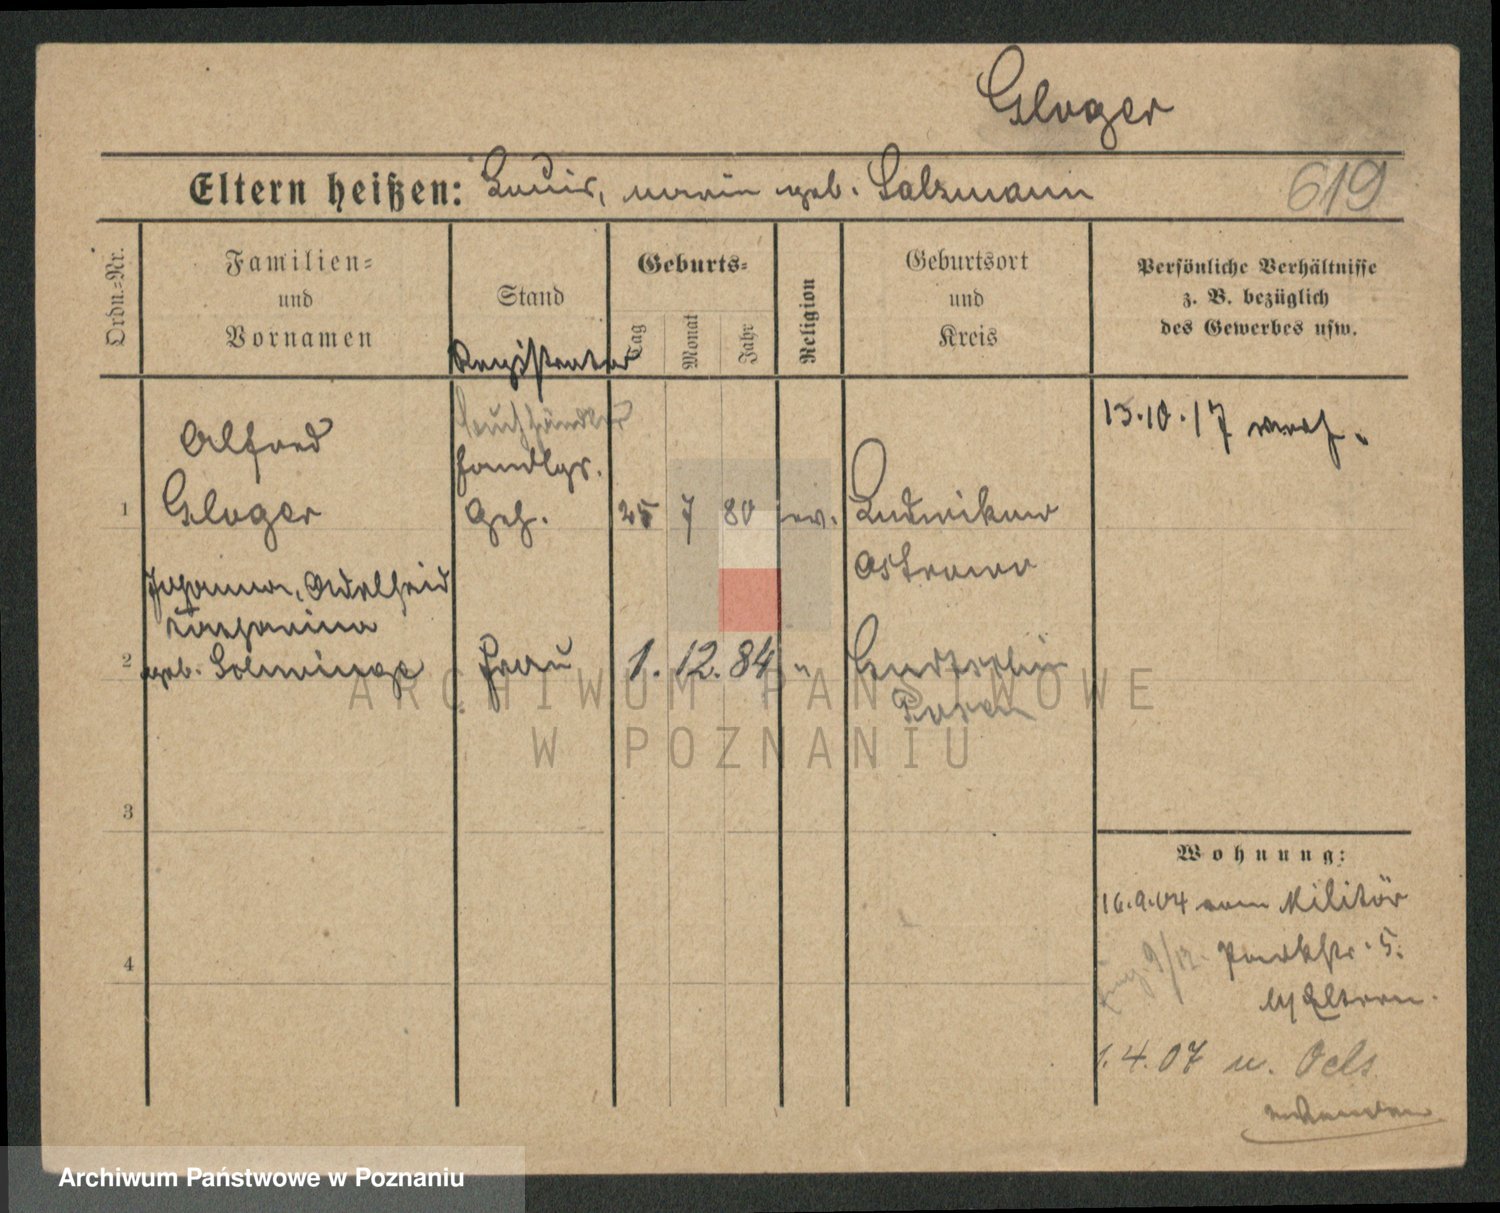 Gloger
Eltern heißen: Louis, Maria geb. Salzmann
619
Ordn.-Nr.
Familien-
und
Vornamen
Stand
Geburts-
Tag
Monat
Jahr
Religion
Geburtsort
und
Kreis
Persönliche Verhältnisse
z. B. bezüglich
des Gewerbes usw.
Registrator
Alfred
Handlgs.
13.10.17
1
Gloger
Geh.
25 7 80 ev.
Ludwikowo
Ostrowo
Johanna, Adelheid
Katharina
2
geb.
Frau
1. 12. 84 "
Posen
3
Wohnung:
16.9.04 vom Militär
4
9/12. Parkstr. 5.
b/ Eltern.
1.4.07 n. Oels
ARCHIWUM PAŃSTWOWE
W POZNANIU
Archiwum Państwowe w Poznaniu